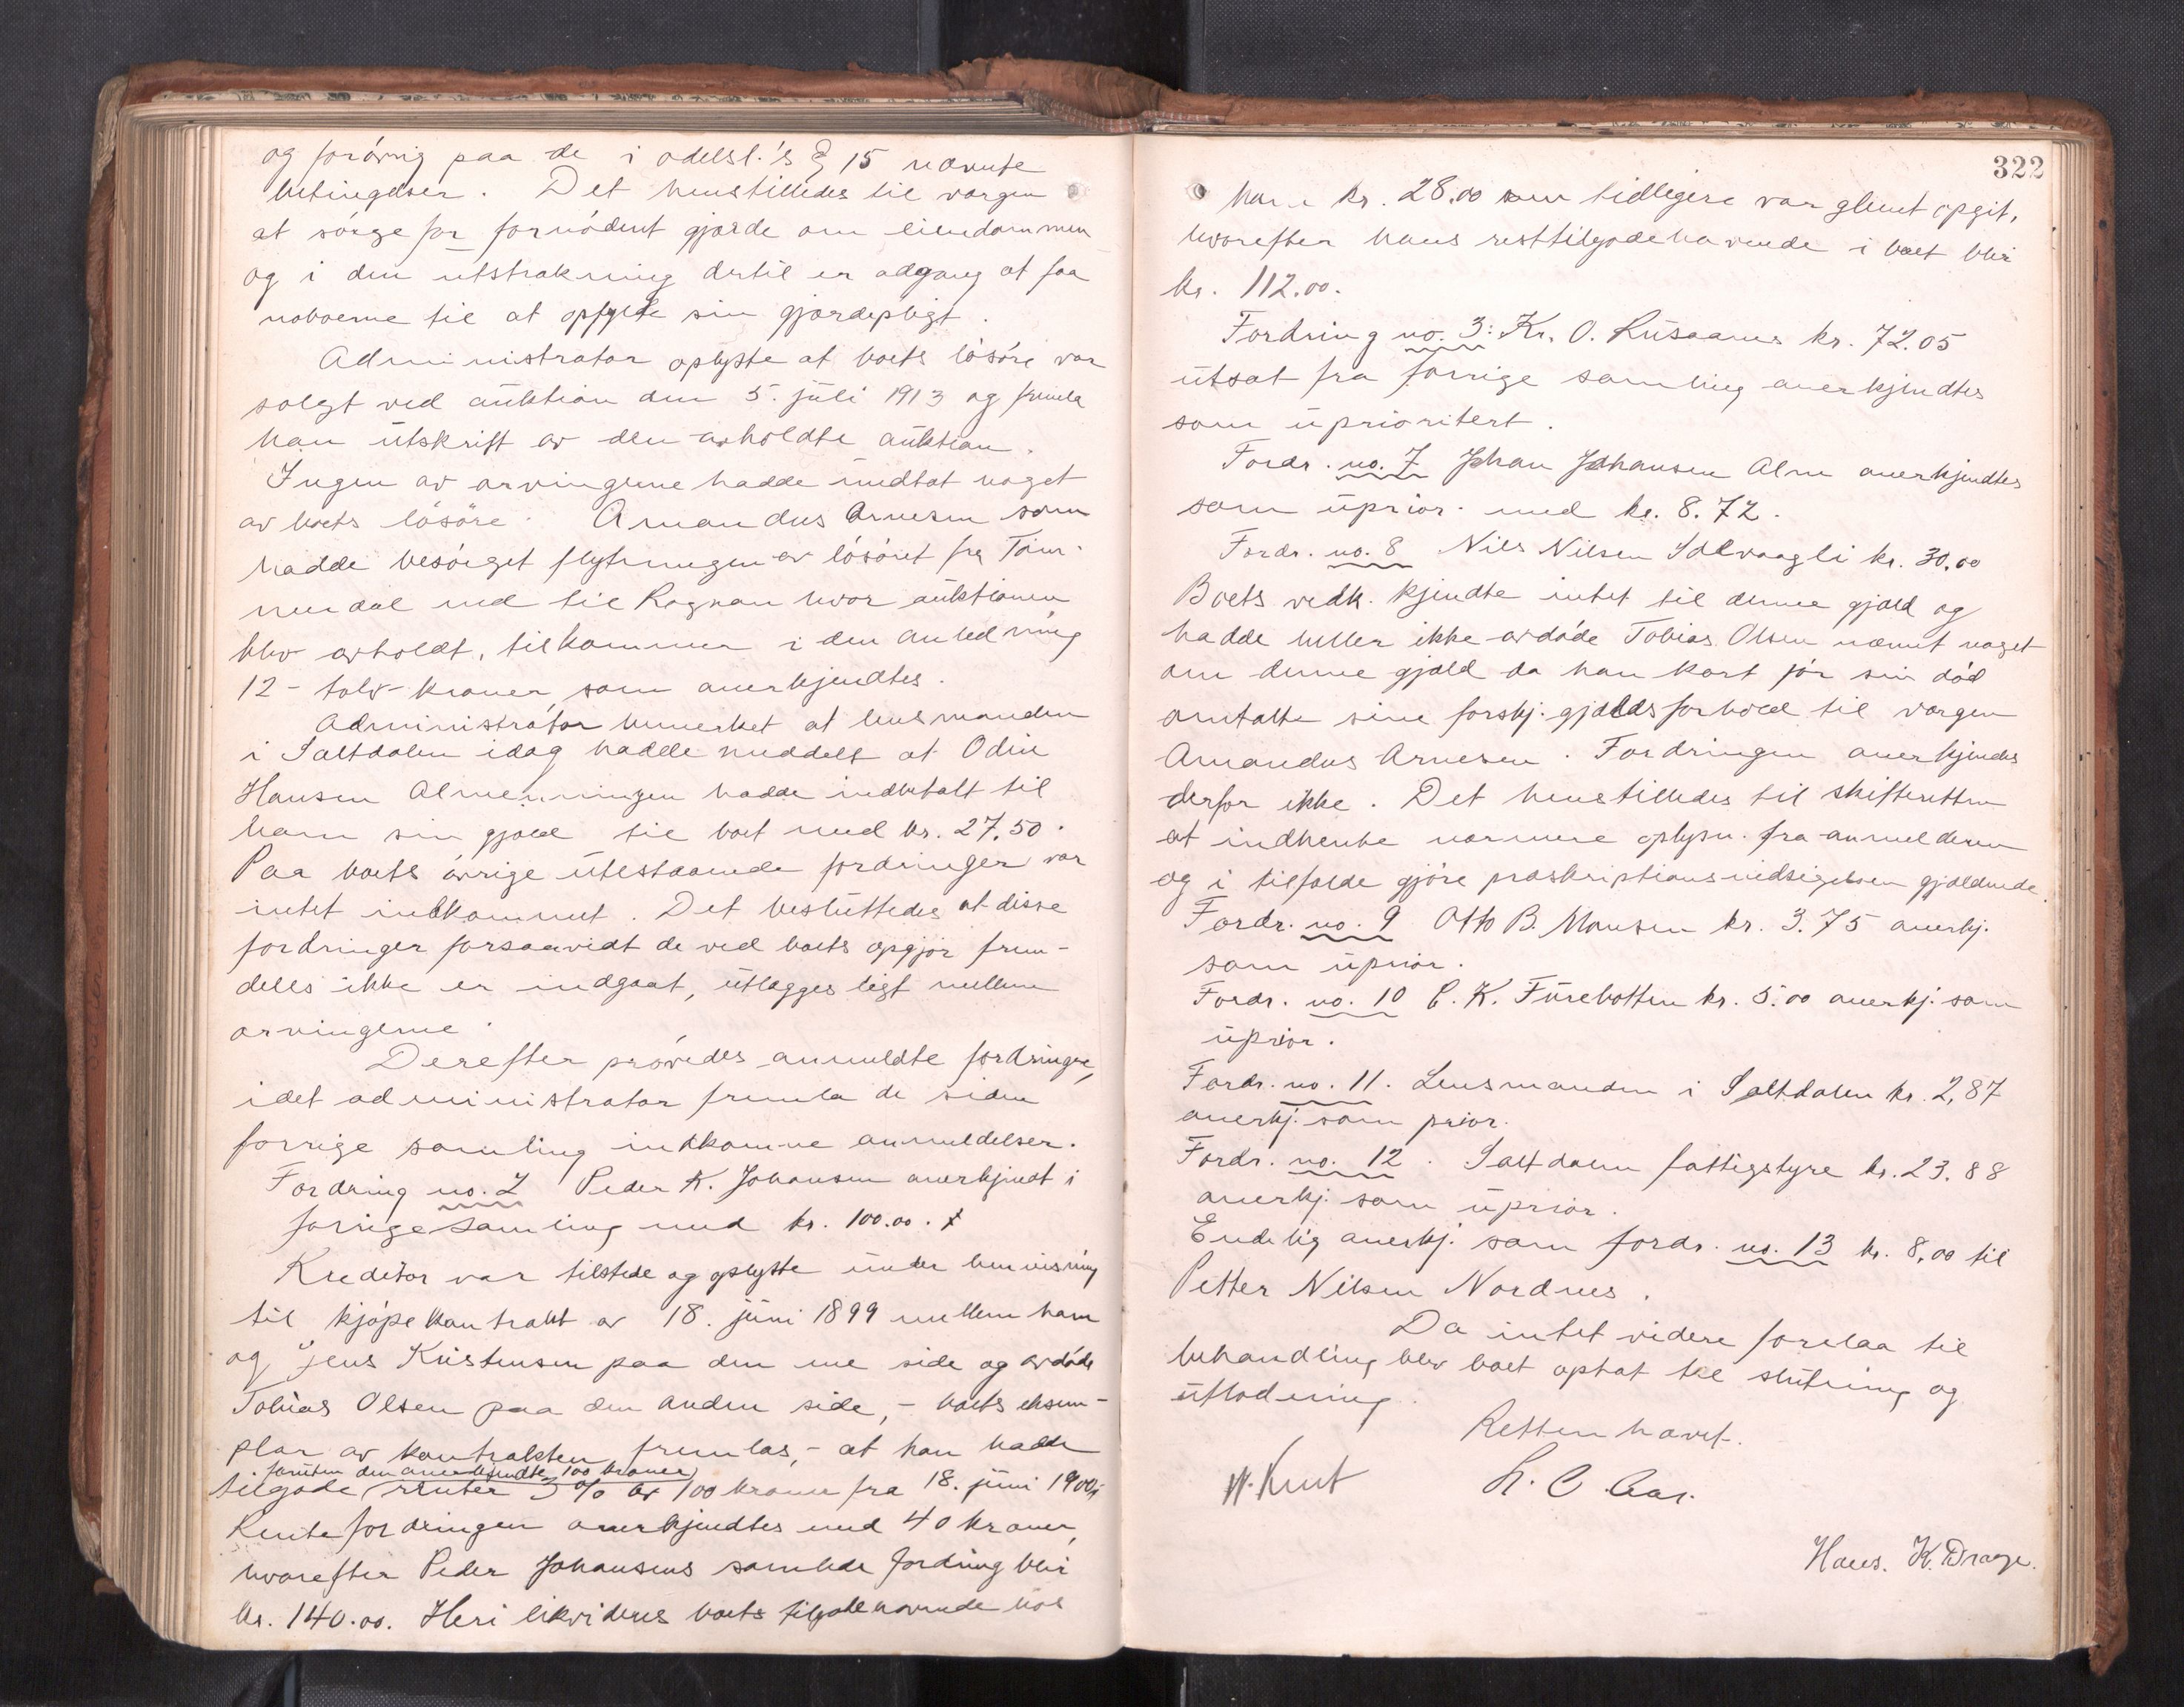 og forövrig paa de i odelsl.'s § 15 nævnte
betingelser. Det henstilledes til vergen
at sörge for fornödent gjærde om eiendommen
og i den utstrækning dertil er adgang at faa
naboerne til at opfylde sin gjærdepligt.
Administrator oplyste at boets lösöre var
solgt ved auktion den 5. juli 1913 og fremla
han utskrift av den avholdte auktion.
Ingen av arvingerne hadde undtat noget
av boets lösöre. Amandus Arnesen som
hadde besörget flytningen av lösöret fra
dal ned til Rognan hvor auktionen
blev avholdt, tilkommer i den anledning
12 - tolv - kroner, som anerkjendtes.
Administrator bemerket at lensmanden
i Saltdalen idag hadde meddelt at Odin
Hansen Almenningen hadde indbetalt til
ham sin gjæld til boet med kr. 27,50.
Paa boets övrige utestaaende fordringer var
intet indkommet. Det besluttedes at disse
fordringer forsaavidt de ved boets opgjör frem-
deles ikke er indgaat, utlægges likt mellem
arvingerne.
Derefter prövedes anmeldte fordringer,
idet administrator fremla de siden
forrige samling indkomne anmeldelser.
Fordring no. 2 Peder K. Johansen anerkjendt i
forrige samling med kr. 100.00.
Kreditor var tilstede og oplyste under henvisning
til kjöpekontrakt av 18. juni 1899 mellem ham
og Jens Kristensen paa den ene side og avdöde
Tobias Olsen paa den anden side, - boets eksem-
plar av kontrakten fremlas, - at han hadde
foruten den anerkjendte 100 kroner
tilgode renter 3 % av 100 kroner fra 18. juni 1900.
Rentefordringen anerkjendtes med 40 kroner,
hvorefter Peder Johansens samlede fordring blir
kr. 140.00. Heri likvideres boets tilgodehavende hos
322
ham kr. 28.00 som tidligere var glemt opgit,
hvorefter hans resttilgodehavende i boet blir
kr. 112.00.
Fordring no. 3: Kr. O. Rusaanes kr. 72.05
utsat fra forrige samling anerkjendtes
som uprioritert.
Fordr. no. 7 Johan Johansen Alm anerkjendtes
som uprior. med kr. 8.72.
Fordr. no. 8 Nils Nilsen kr. 30,00
Boets vedk. kjendte intet til denne gjæld og
hadde heller ikke avdöde Tobias Olsen nævnt noget
om denne gjæld da han kort för sin död
omtalte sine forskj. gjældsforhold til vergen
Amandus Arnesen. Fordringen anerkjendes
derfor ikke. Det henstilledes til skifteretten
at indhente nærmere oplysn. fra anmelderen
og i tilfælde gjöre præskriptionsindsigelsen gjældende.
Fordr. no. 9 Otto B. Monsen kr. 3.75 anerkj.
som uprior.
Fordr. no. 10 C. K. Furebotten kr. 5.00 anerkj. som
uprior.
Fordr. no. 11. Lensmanden i Saltdalen kr. 2,87
anerkj. som prior.
Fordr. no. 12. Saltdalen fattigstyre kr. 23.88
anerkj. som uprior.
Endelig anerkj. som fordr. no. 13 kr. 8,00 til
Petter Nilsen Nordnes.
Da intet videre forelaa til
behandling blev boet optat til slutning og
utlodning.
Retten hævet.
W. Knut L. C. Aas.
Hans. K. Drage.